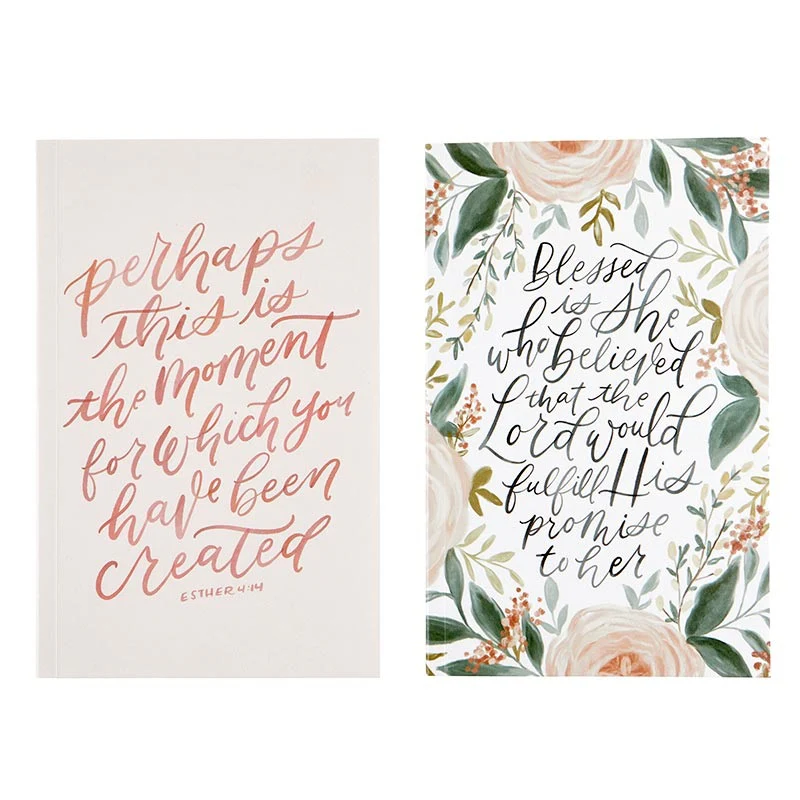 perhaps
this is
the moment
for which you
have been
created
ESTHER 4:14
Blessed
is she
who believed
that the
Lord would
fulfill His
promise
to her